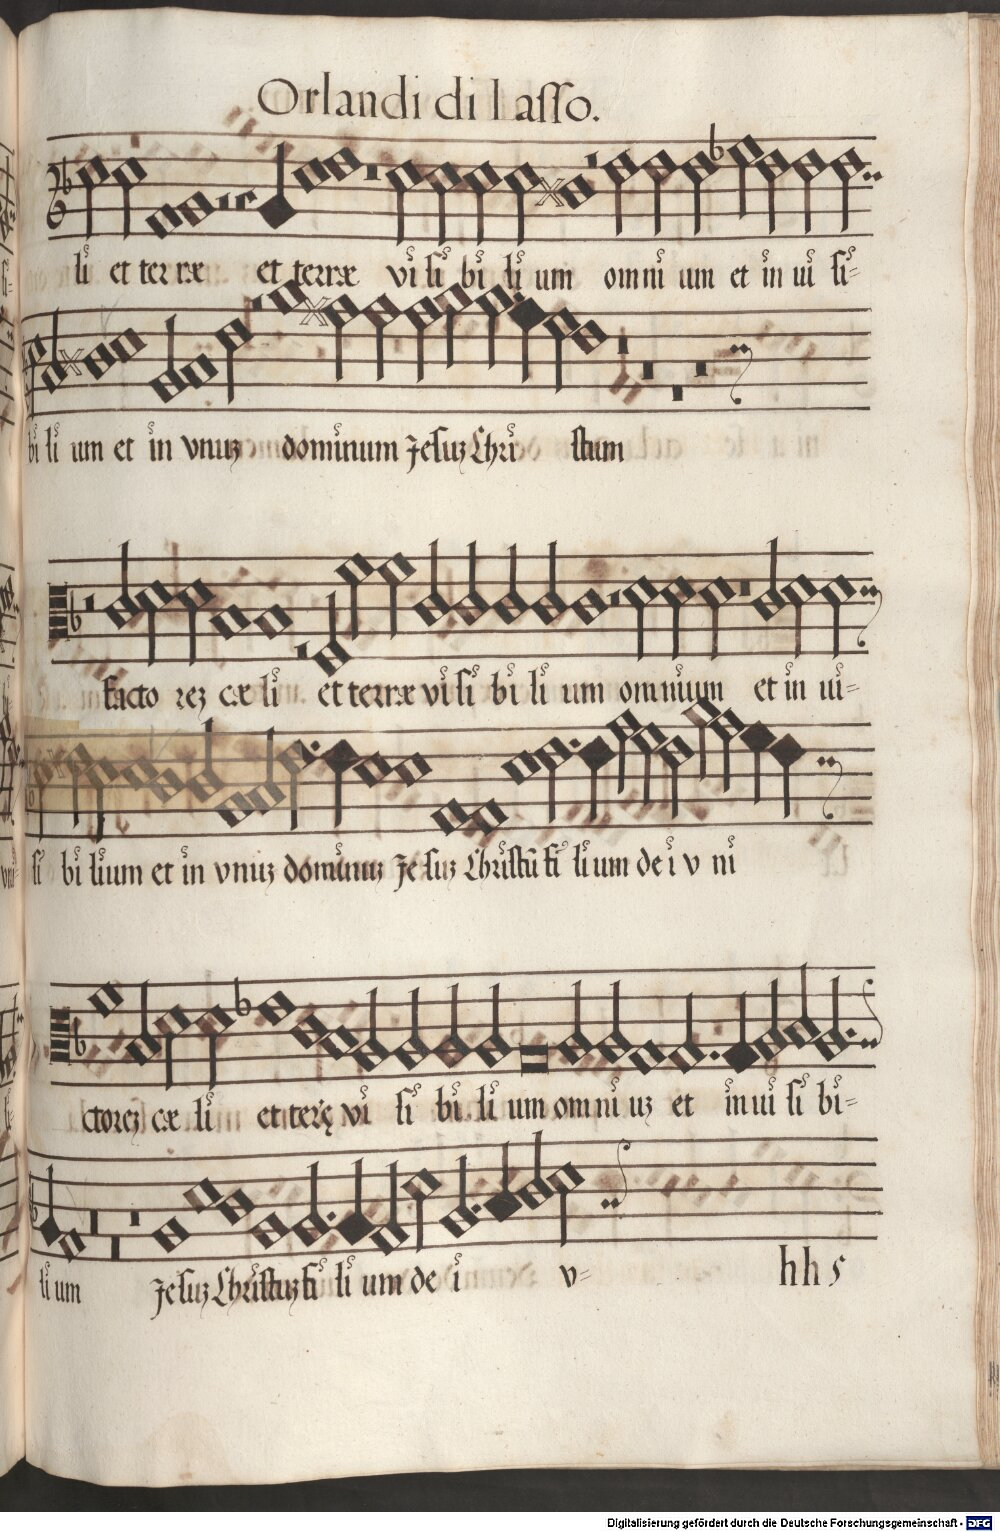 Orlandi di Lasso.
li et ter ræ et terræ vi si bi li um omni um et in ui si=
bi li um et in vnuz dominum Jesuz Chri stum
facto rez cæ li et terræ vi si bi li um omnium et in ui=
si bi lium et in vnuz dominuz Je suz Christū fi li um de i v ni
ctorez cæ li et terrę vi si bi li um om ni uz et in ui si bi=
li um Jesuz Christuz fi li um de i v=
hh 5
Digitalisierung gefördert durch die Deutsche Forschungsgemeinschaft - DFG